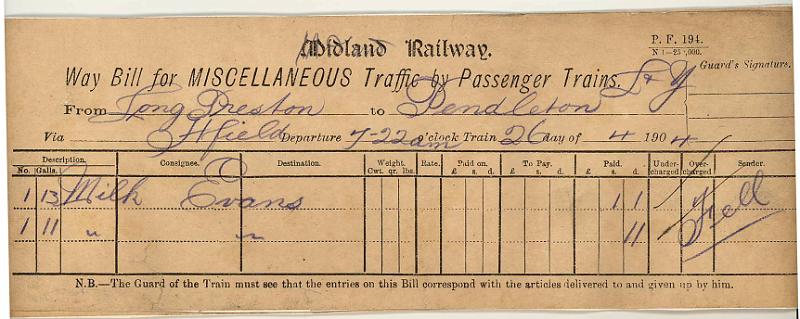 Midland Railway.
P. F. 194.
Way Bill for MISCELLANEOUS Traffic by Passenger Trains. L & Y
Guard's Signature.
From Long Preston to Pendleton
Via Hfield Departure 7-22am o'clock Train 26 day of 4 1904
Description. Consignee. Destination. Weight. Rate. Paid on. To Pay. Paid. Under-charged Over-charged Sender.
No. Galls. Cwt. qr. lbs. £ s. d. £ s. d. £ s. d.
1 13 Milk Evans 1 1 Fell
1 11 " " 11
N.B.—The Guard of the Train must see that the entries on this Bill correspond with the articles delivered to and given up by him.